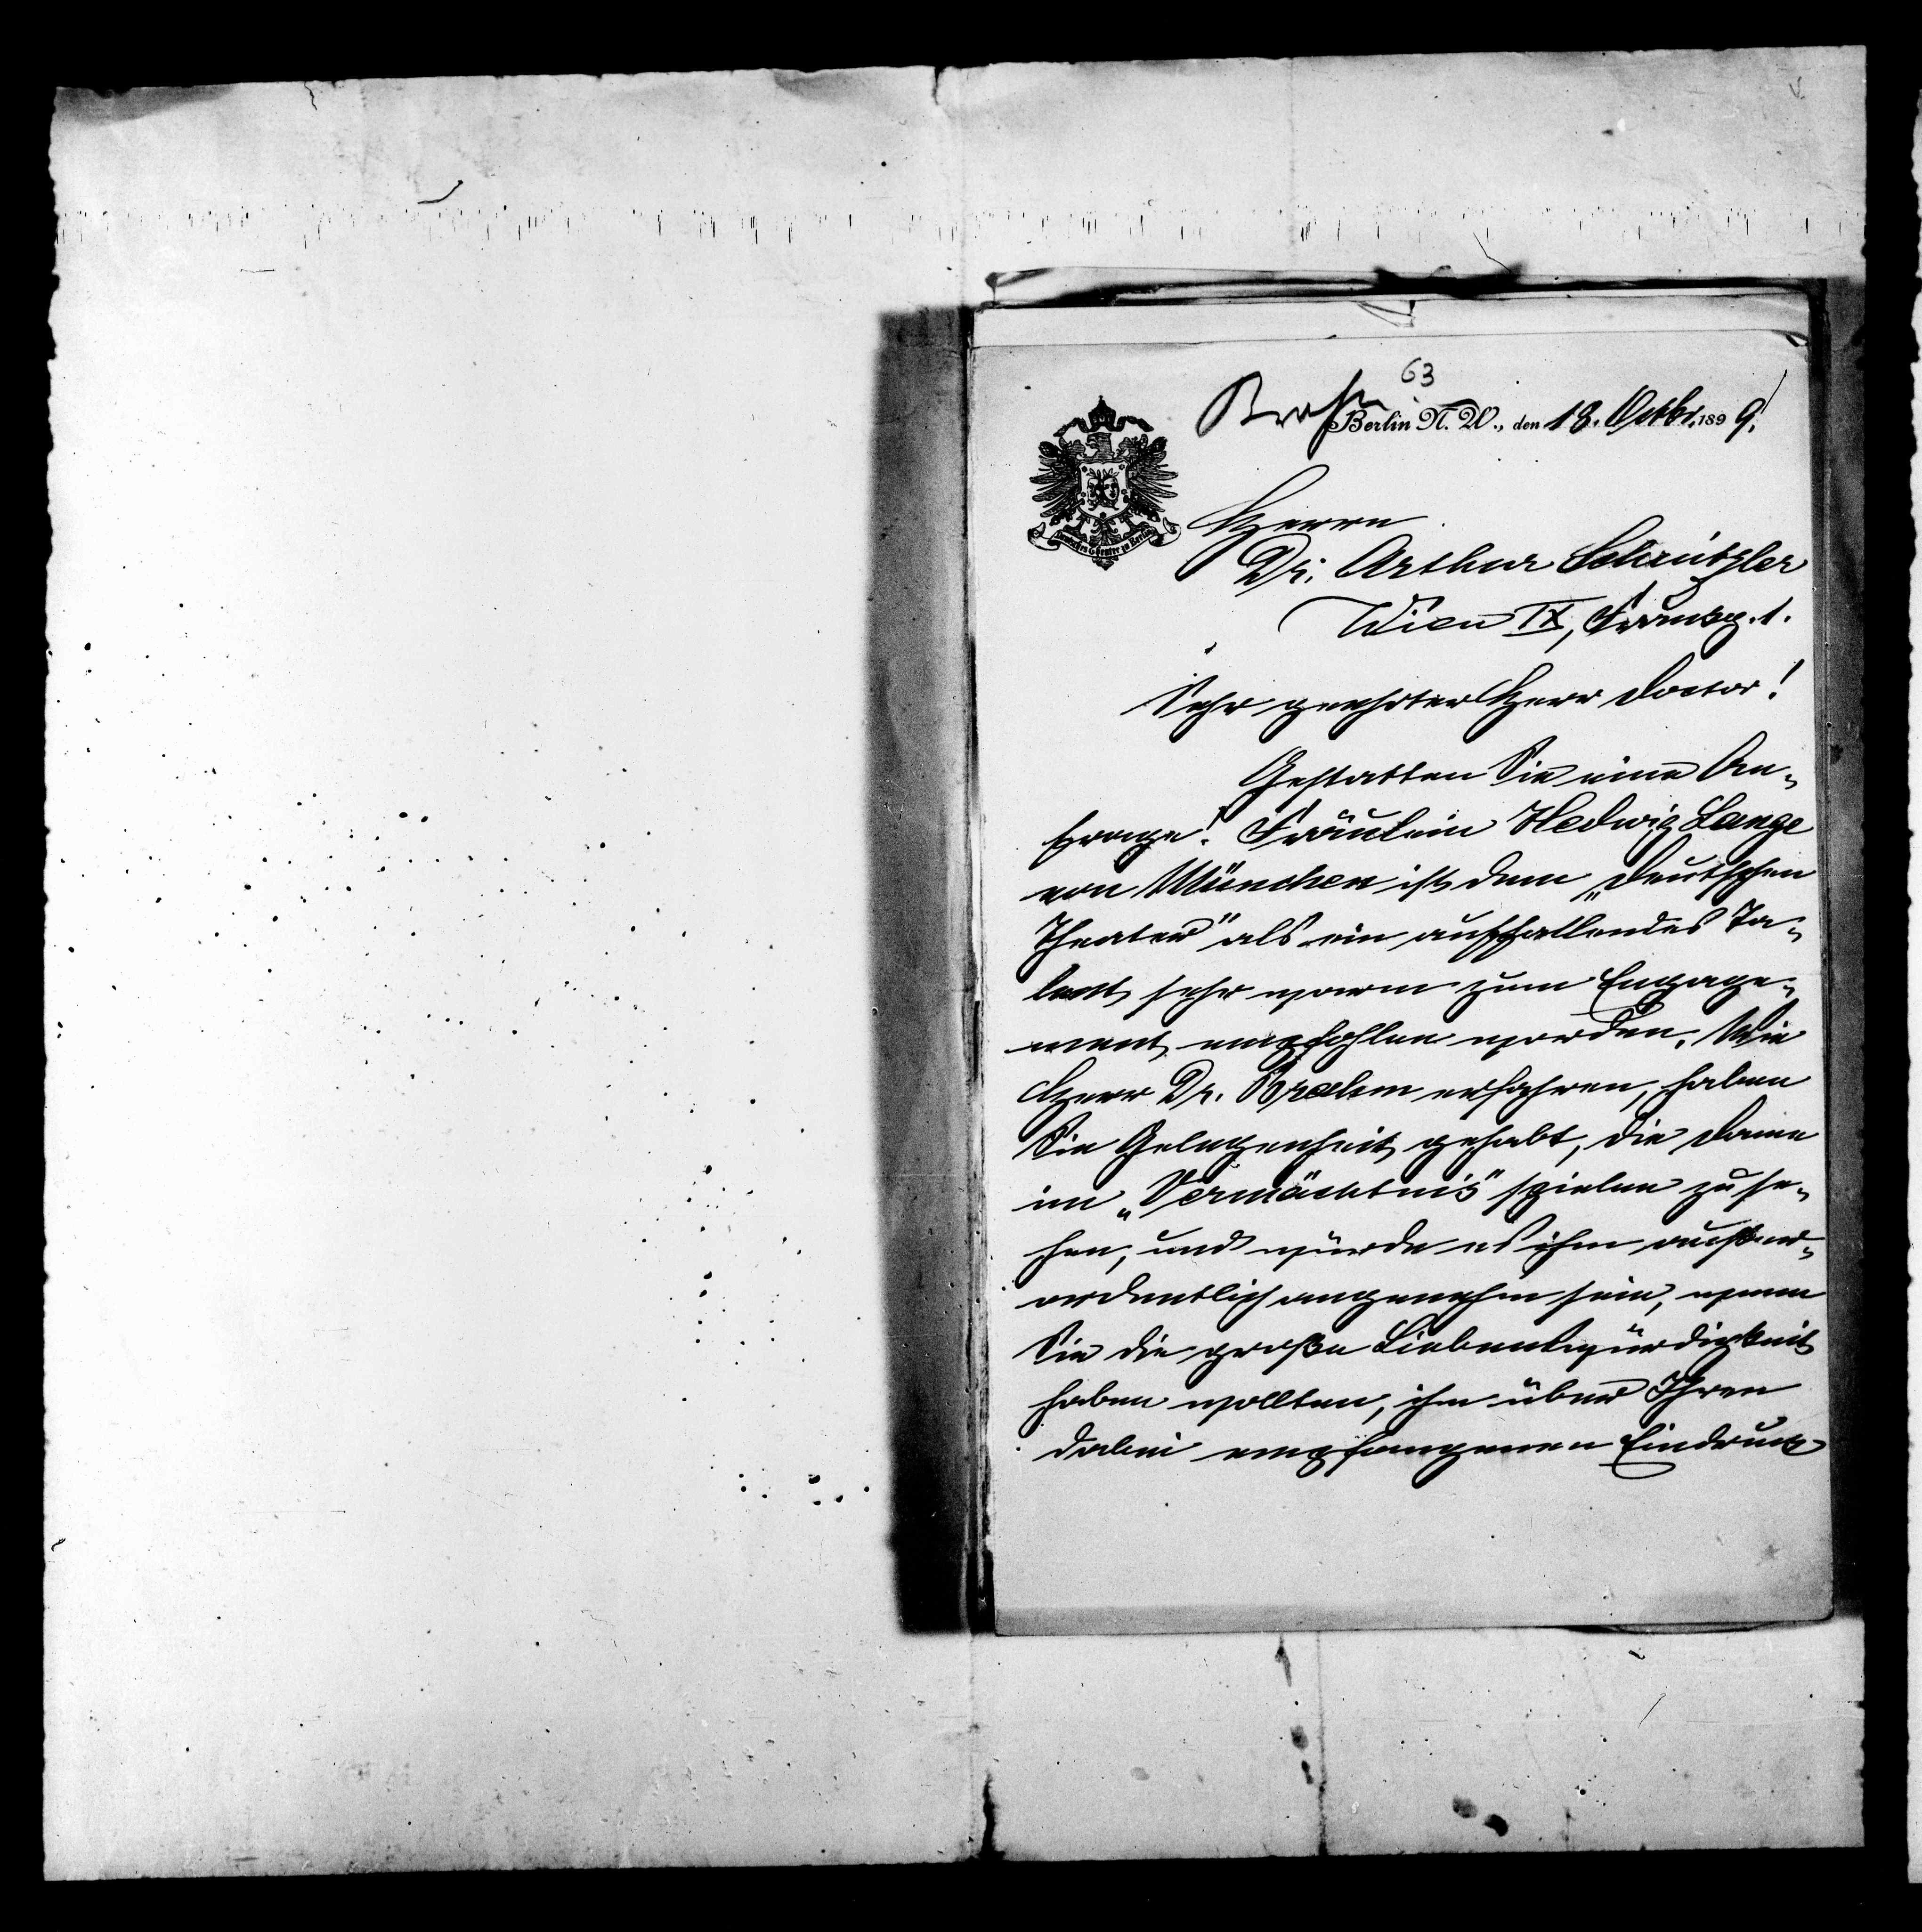 63
Brahm
Berlin N. W., den 18. Octbr. 1899.
Deutsches Theater zu Berlin
Herrn
Dr. Arthur Schnitzler
Wien IX, Frankg. 1.
Sehr geehrter Herr Doctor!
Gestatten Sie eine An-
frage! Fräulein Hedwig Lange
von München ist dem „Deutschen
Theater" als ein auffallendes Ta-
lent sehr warm zum Engage-
ment empfohlen worden. Wie
Herr Dr. Brahm erfahren, haben
Sie Gelegenheit gehabt, die Dame
im „Vermächtnis" spielen zu se-
hen, und würde es ihm außer-
ordentlich angenehm sein, wenn
Sie die große Liebenswürdigkeit
haben wollten, ihm über Ihren
dabei empfangenen Eindruck